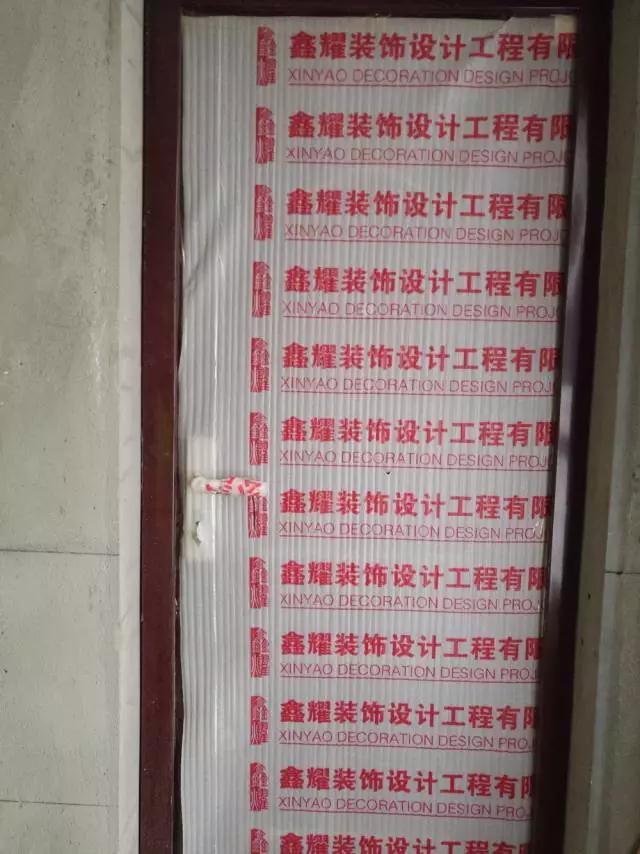 鑫耀装饰设计工程有限
XINYAO DECORATION DESIGN PROJ
鑫耀装饰设计工程有限
XINYAO DECORATION DESIGN PROJ
鑫耀装饰设计工程有限
XINYAO DECORATION DESIGN PROJ
鑫耀装饰设计工程有限
XINYAO DECORATION DESIGN PROJ
鑫耀装饰设计工程有限
XINYAO DECORATION DESIGN PROJ
鑫耀装饰设计工程有限
XINYAO DECORATION DESIGN PROJ
鑫耀装饰设计工程有限
XINYAO DECORATION DESIGN PROJ
鑫耀装饰设计工程有限
XINYAO DECORATION DESIGN PROJ
鑫耀装饰设计工程有限
XINYAO DECORATION DESIGN PROJ
鑫耀装饰设计工程有
XINYAO DECORATION DESIGN PROJ
鑫耀装饰设计工程有
XINYAO DECORATION DESIGN PRO
鑫耀装饰设计工程有